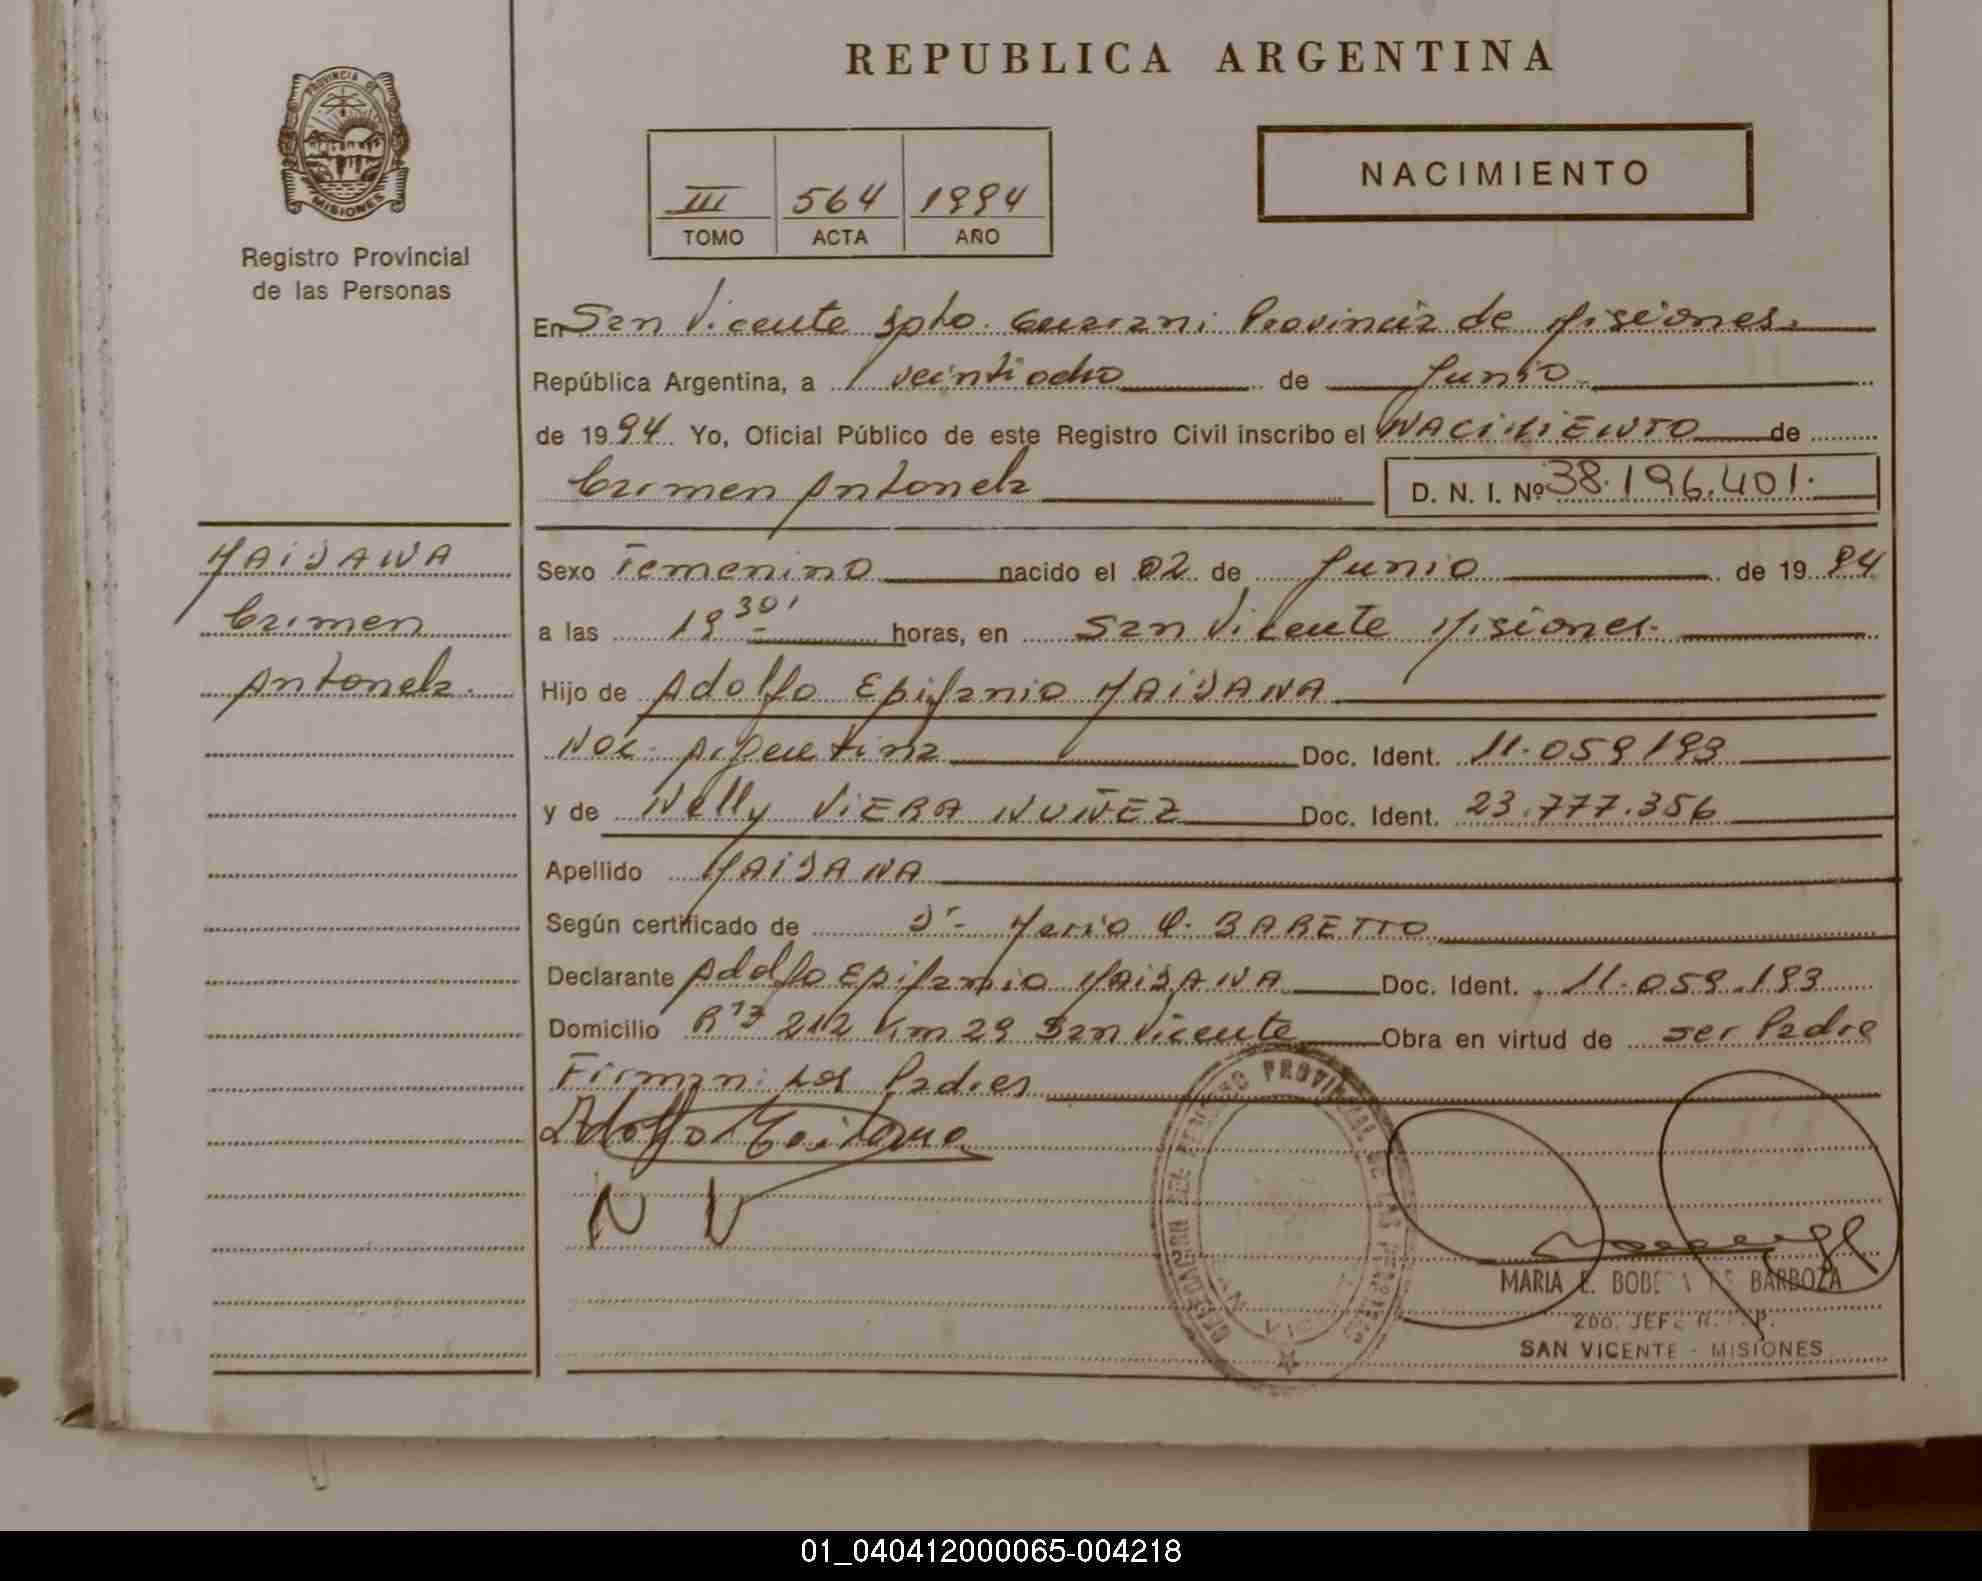 REPUBLICA ARGENTINA
PROVINCIA DE
MISIONES
Registro Provincial
de las Personas
III 564 1994
TOMO ACTA AÑO
NACIMIENTO
En San Vicente Dpto. Guarani Provincia de Misiones.
República Argentina, a veintiocho de Junio
de 1994 Yo, Oficial Público de este Registro Civil inscribo el NACIMIENTO de
Carmen Antonela D. N. I. Nº 38.196.401.
MAIDANA
Carmen
Antonela.
Sexo Femenino nacido el 02 de Junio de 1994
a las 19 30' horas, en San Vicente Misiones.
Hijo de Adolfo Epifanio MAIDANA
Nac. Argentina Doc. Ident. 11.059193
y de Nelly VIERA NUÑEZ Doc. Ident. 23.777.356
Apellido MAIDANA
Según certificado de Dr- Mario O. BARETTO
Declarante Adolfo Epifanio MAIDANA Doc. Ident. 11.059.193
Domicilio 212 Km 29 San Vicente Obra en virtud de ser Padre
Firman: Los Padres
Adolfo Maidana
N V
DELEGACION DEL REGISTRO PROVINCIAL DE LAS PERSONAS
MARIA E. DE BARBOZA
2DO. JEFE
SAN VICENTE - MISIONES
01_040412000065-004218